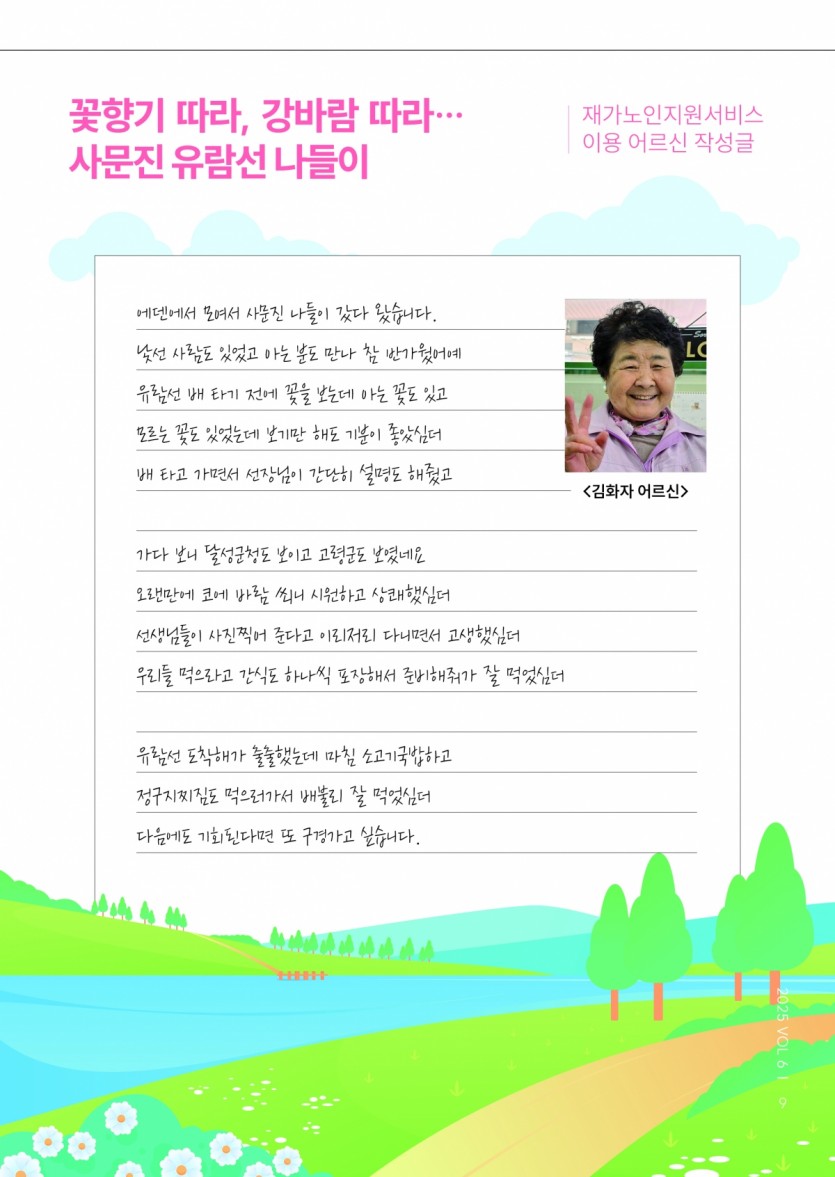 꽃향기 따라, 강바람 따라…
사문진 유람선 나들이
재가노인지원서비스
이용 어르신 작성글
에덴에서 모여서 사문진 나들이 갔다 왔습니다.
낯선 사람도 있었고 아는 분도 만나 참 반가웠어예
유람선 배 타기 전에 꽃을 보는데 아는 꽃도 있고
모르는 꽃도 있었는데 보기만 해도 기분이 좋았심더
배 타고 가면서 선장님이 간단히 설명도 해줬고
<김화자 어르신>
가다 보니 달성군청도 보이고 고령군도 보였네요
오랜만에 코에 바람 쐬니 시원하고 상쾌했심더
선생님들이 사진찍어 준다고 이리저리 다니면서 고생했심더
우리들 먹으라고 간식도 하나씩 포장해서 준비해줘가 잘 먹었심더
유람선 도착해가 출출했는데 마침 소고기국밥하고
정구지찌짐도 먹으러가서 배불리 잘 먹었심더
다음에도 기회된다면 또 구경가고 싶습니다.
2025 VOL 6 | 9